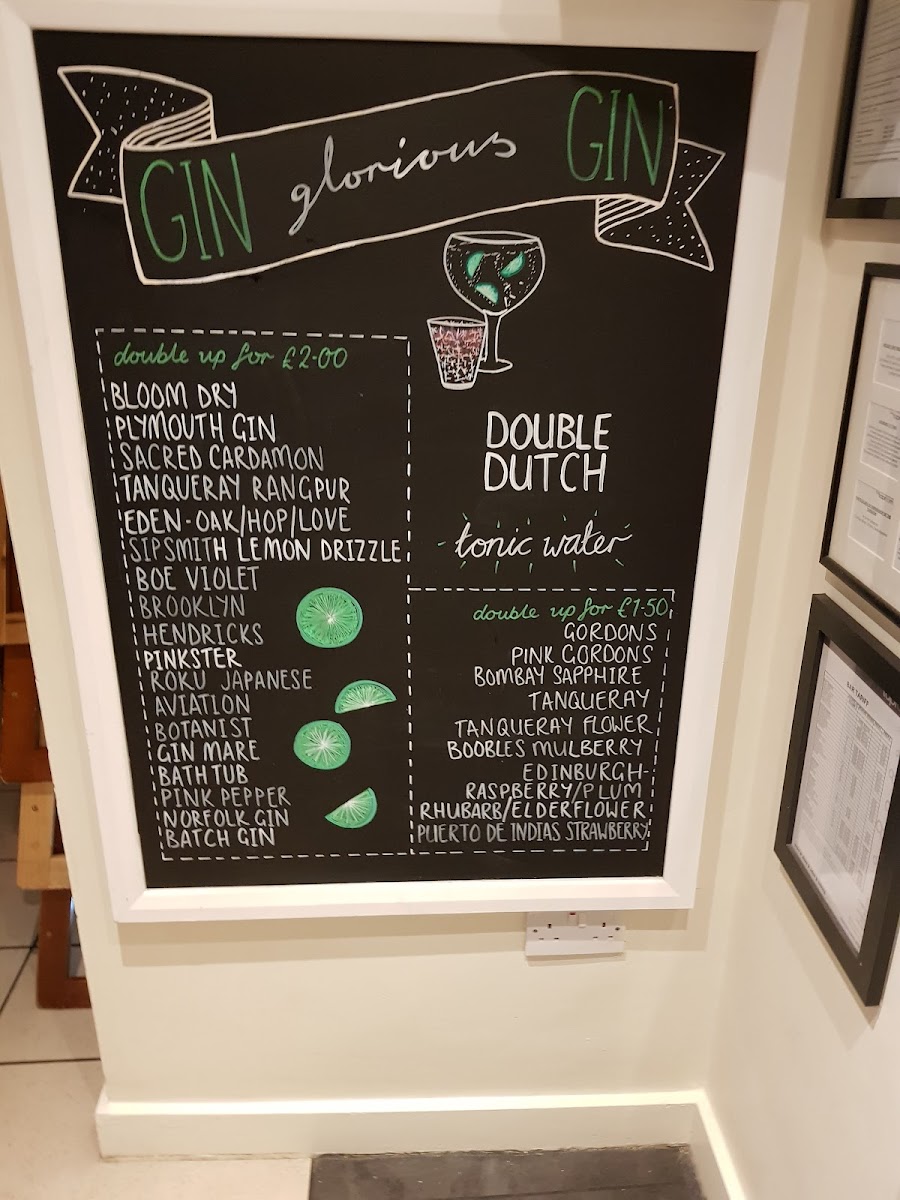 GIN glorious GIN
double up for £2.00
BLOOM DRY
PLYMOUTH GIN
SACRED CARDAMON
TANQUERAY RANGPUR
EDEN-OAK/HOP/LOVE
SIPSMITH LEMON DRIZZLE
BOE VIOLET
BROOKLYN
HENDRICKS
PINKSTER
ROKU JAPANESE
AVIATION
BOTANIST
GIN MARE
BATH TUB
PINK PEPPER
NORFOLK GIN
BATCH GIN
DOUBLE
DUTCH
tonic water
double up for £1.50
GORDONS
PINK GORDONS
BOMBAY SAPPHIRE
TANQUERAY
TANQUERAY FLOWER
BOOBLES MULBERRY
EDINBURGH-
RASPBERRY/PLUM
RHUBARB/ELDERFLOWER
PUERTO DE INDIAS STRAWBERRY
BAR TARIFF